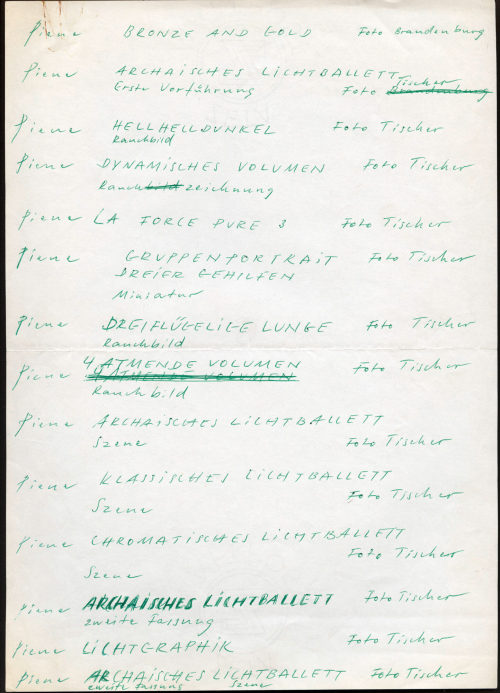 Piene BRONZE AND GOLD Foto Brandenburg
Piene ARCHAISCHES LICHTBALLETT Tischer
Erste Vorführung Foto Brandenburg
Piene HELLHELLDUNKEL Foto Tischer
Rauchbild
Piene DYNAMISCHES VOLUMEN Foto Tischer
Rauchbild zeichnung
Piene LA FORCE PURE 3 Foto Tischer
Piene GRUPPENPORTRAIT Foto Tischer
DREIER GEHILFEN
Miniatur
Piene DREIFLÜGELIGE LUNGE Foto Tischer
Rauchbild
4 ATMENDE VOLUMEN Foto Tischer
Piene ATMENDE VOLUMEN
Rauchbild
Piene ARCHAISCHES LICHTBALLETT
Szene Foto Tischer
Piene KLASSISCHES LICHTBALLETT
Foto Tischer
Szene
Piene CHROMATISCHES LICHTBALLETT
Foto Tischer
Szene
Piene ARCHAISCHES LICHTBALLETT Foto Tischer
zweite Fassung
Piene LICHTGRAPHIK Foto Tischer
Piene ARCHAISCHES LICHTBALLETT Foto Tischer
zweite Fassung Szene